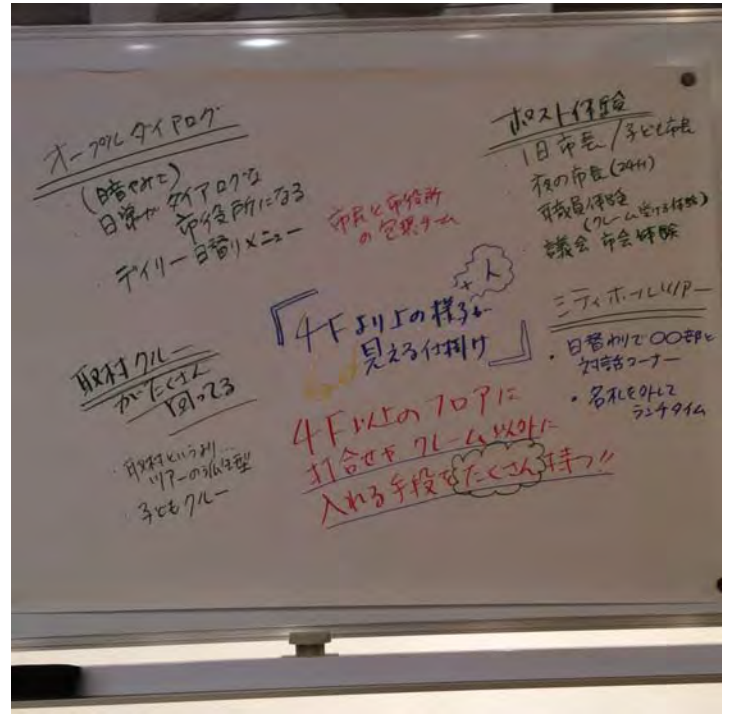 オープルダイアログ
(暗やみで)
日常がダイアログな
市役所になる
・デイリー日替りメニュー
市民と市役所
の包摂チーム
ポスト体験
・1日市長/子ども市長
・夜の市長(24h)
・職員体験
(クレーム受ける体験)
・議会 市会体験
+人
『4Fより上の様子が
見える仕掛け』
シティホールツアー
・日替わりで〇〇部と
対話コーナー
・名札を外して
ランチタイム
取材クルー
がたくさん
回ってる
・取材というより…
ツアーの
・子どもクルー
4F以上のフロアに
打合せやクレーム以外に
入れる手段をたくさん持つ!!